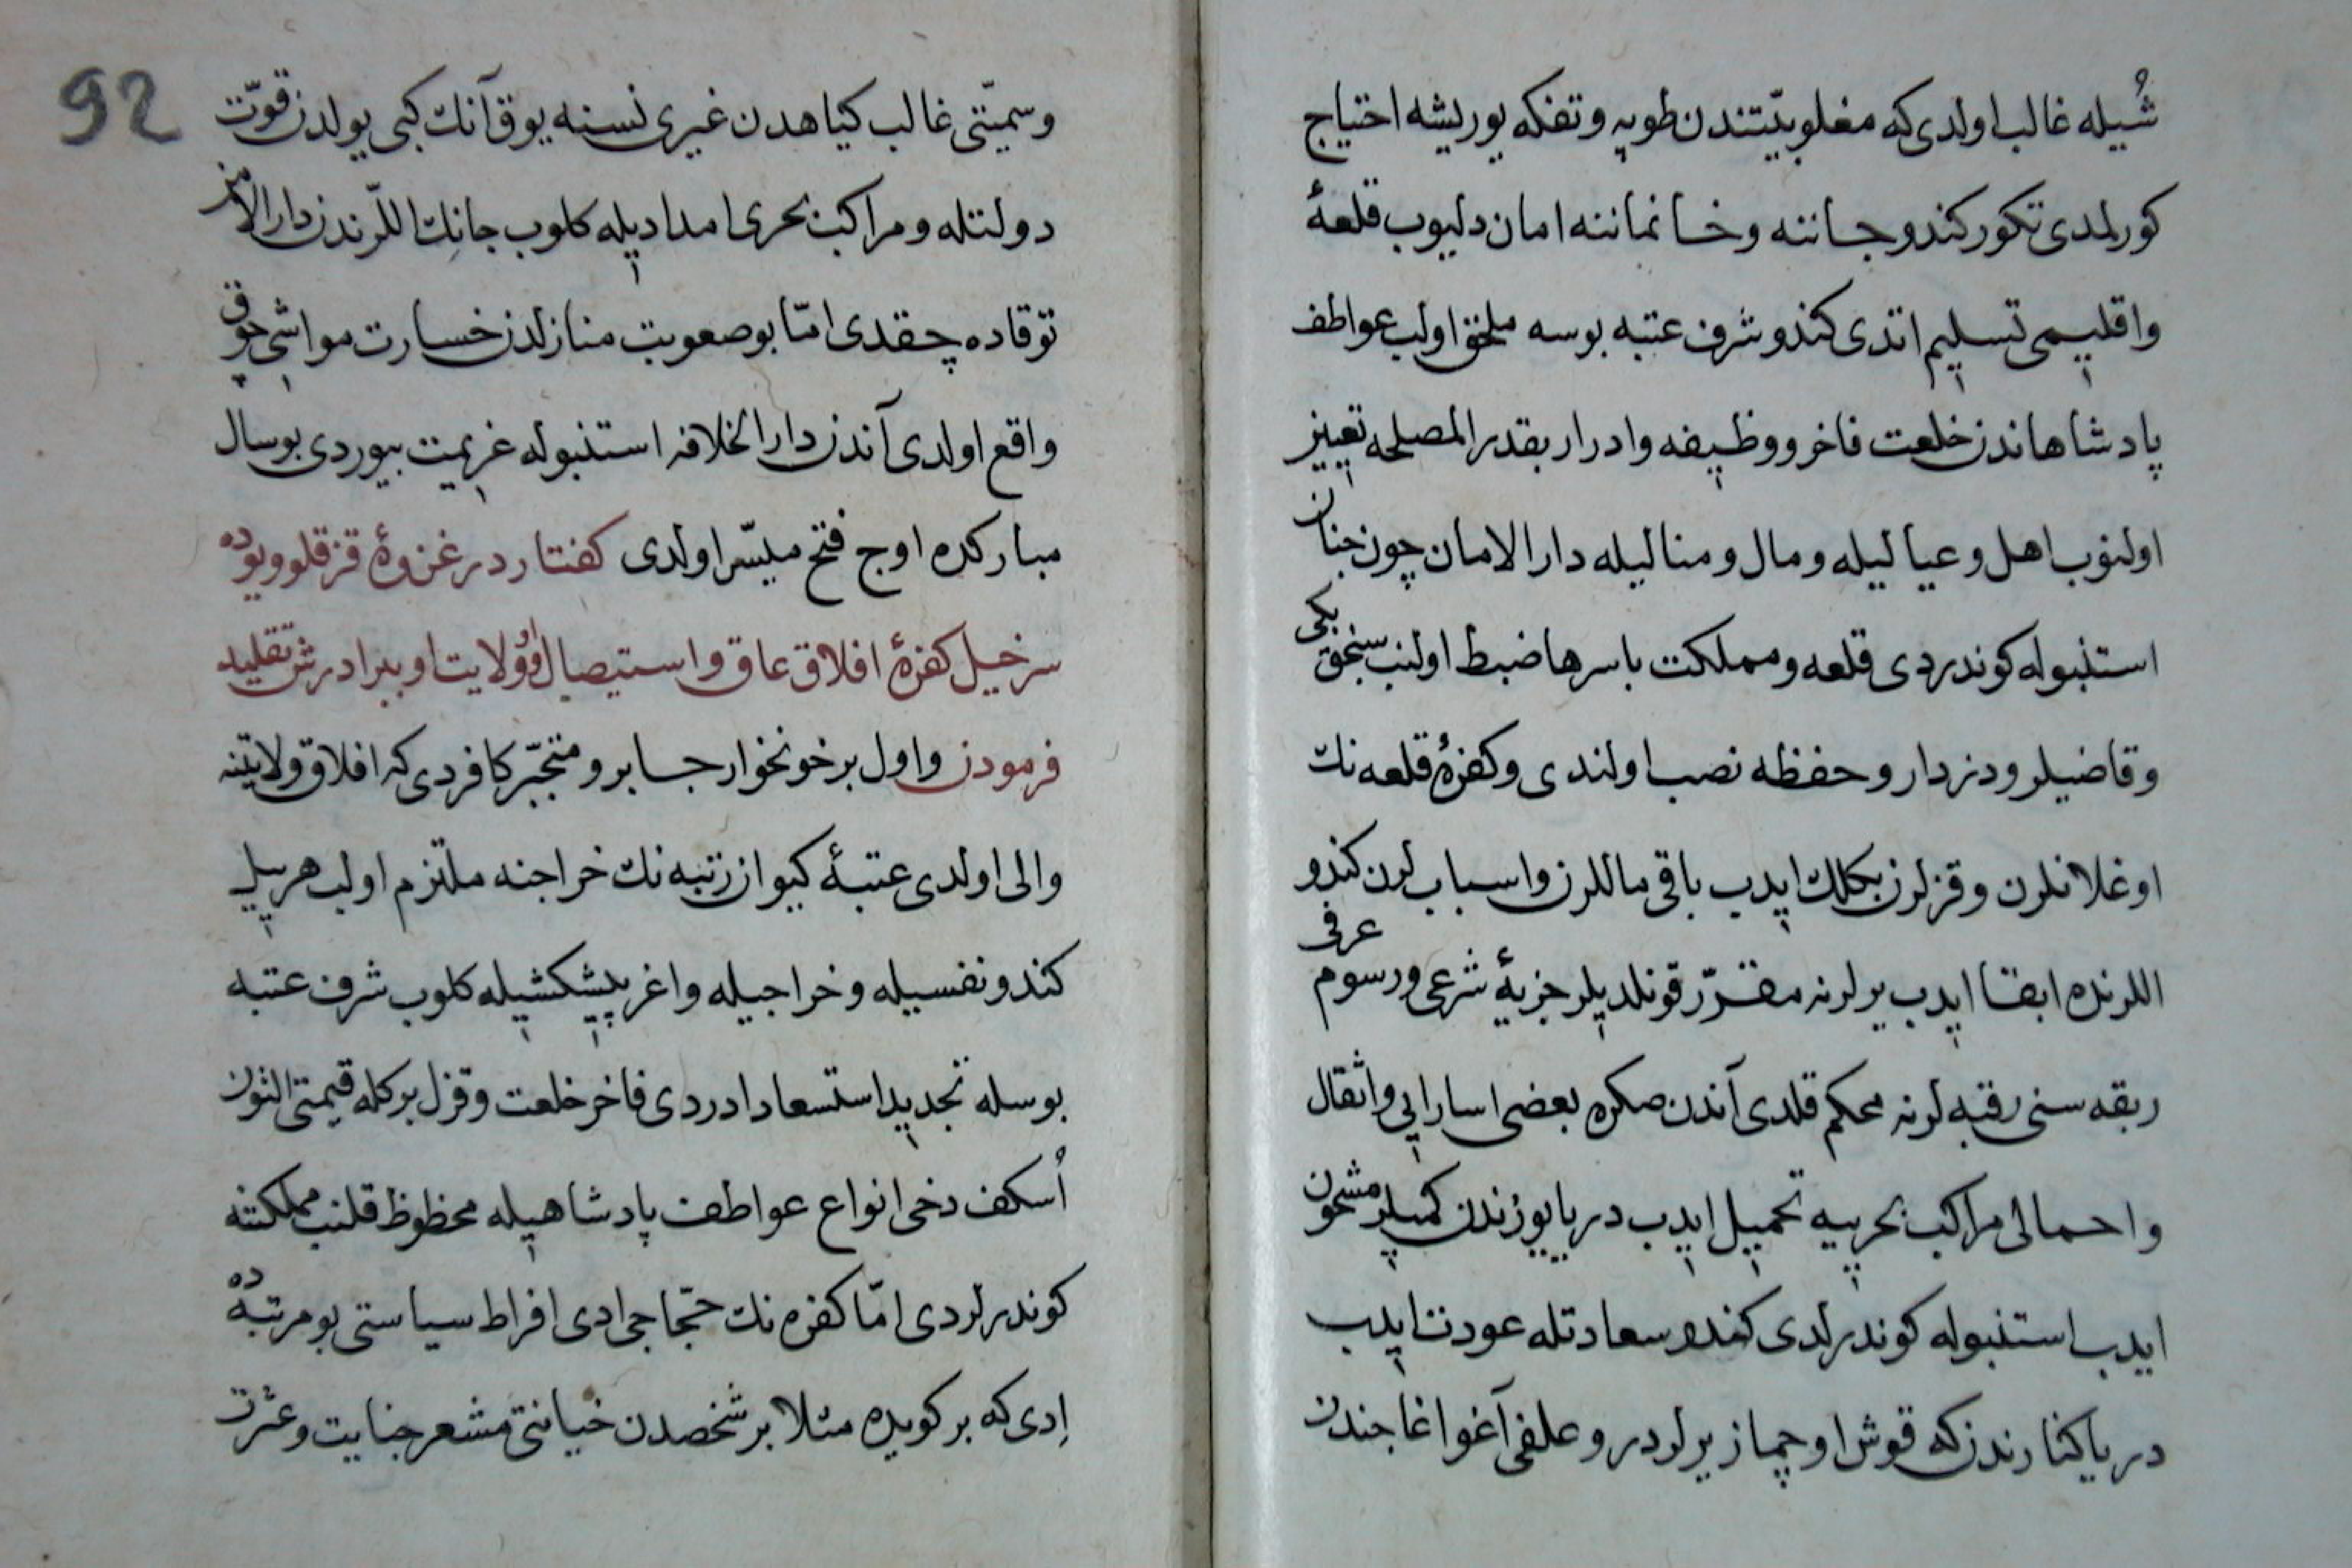 شُيله غالب اولدی که مغلوبيّتندن طوپه و تفنکه يوريشه احتياج
کورلمدی تکور کندو جاننه و خانماننه امان دليوب قلعهٔ
و اقليمی تسليم اتدی کندو شرف عتبه بوسه ملحق اولب عواطف
پادشاهاندن خلعت فاخر و وظيفه و ادرار بقدر المصلحه تعيين
اولنوب اهل و عياليله و مال و مناليله دار الامان چون جنان
استنبوله کوندردی قلعه و مملکت باسرها ضبط اولنب سنجق بکی
و قاضيلر و دزدار و حفظه نصب اولندی و کفرهٔ قلعه نك
اوغلانلرن و قزلرن بکلك ايدب باقی ماللرن و اسباب لرن کندو
اللرنده ابقا ايدب يرلرنه مقرّر قونلديلر جزيهٔ شرعی و رسوم عرفی
ربقه سنی رقبه لرنه محکم قلدی آندن صکره بعضی اسارايی و اثقال
و احمالی مراکب بحرييه تحميل ايدب دريا يوزندن کميلر مشحون
ايدب استنبوله کوندرلدی کندو سعادتله عودت ايدب
دريا کنارندن که قوش اوچماز يرلردر و علفی آغو اغاجندن
92
و سميّتی غالب کياهدن غيری نسنه يوق آنك کبی يولدن قوّت
دولتله و مراکب بحری امداديله کلوب جانك اللرندن دار الامن
توقاده چقدی امّا بو صعوبت منازلدن خسارت مواشی چوق
واقع اولدی آندن دار الخلافه استنبوله عزيمت بيوردی بو سال
مبارکده اوج فتح ميسّر اولدی کفتار در غزوهٔ قزقلو ويوده
سرخيل کفرهٔ افلاق عاق و استيصال او و ولايت او ببرادرش تقليد
فرمودن و اول بر خونخوار جابر و متجبّر کافردی که افلاق ولايتنه
والی اولدی عتبهٔ کيوان رتبه نك خراجنه ملتزم اولب هر ييل
کندو نفسيله و خراجيله و اغر پيشکشيله کلوب شرف عتبه
بوسله تجديد استسعاد ادردی فاخر خلعت و قزل برکله قيمتی التون
اُسکف دخی انواع عواطف پادشاهيله محظوظ قلنب مملکتنه
کوندرلردی امّا کفره نك حجّاجی ادی افراط سياستی بو مرتبه ده
اِدی که بر کويده مثلا بر شخصدن خيانتی مشعر جنايت و عثرت